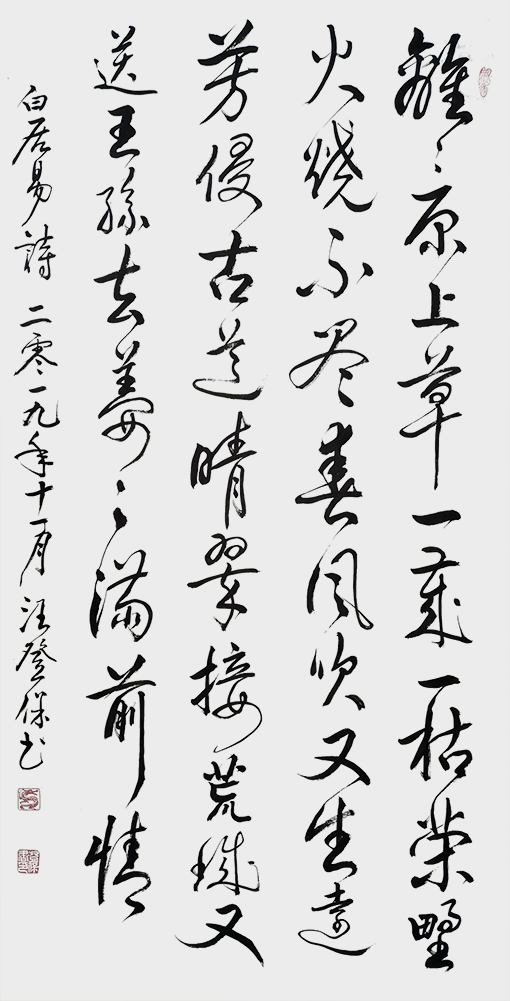 離〻原上草一歲一枯榮野
火燒不尽春風吹又生遠
芳侵古道晴翠接荒城又
送王孫去萋〻滿前情
白居易詩 二零一九年十一月 汪登保书